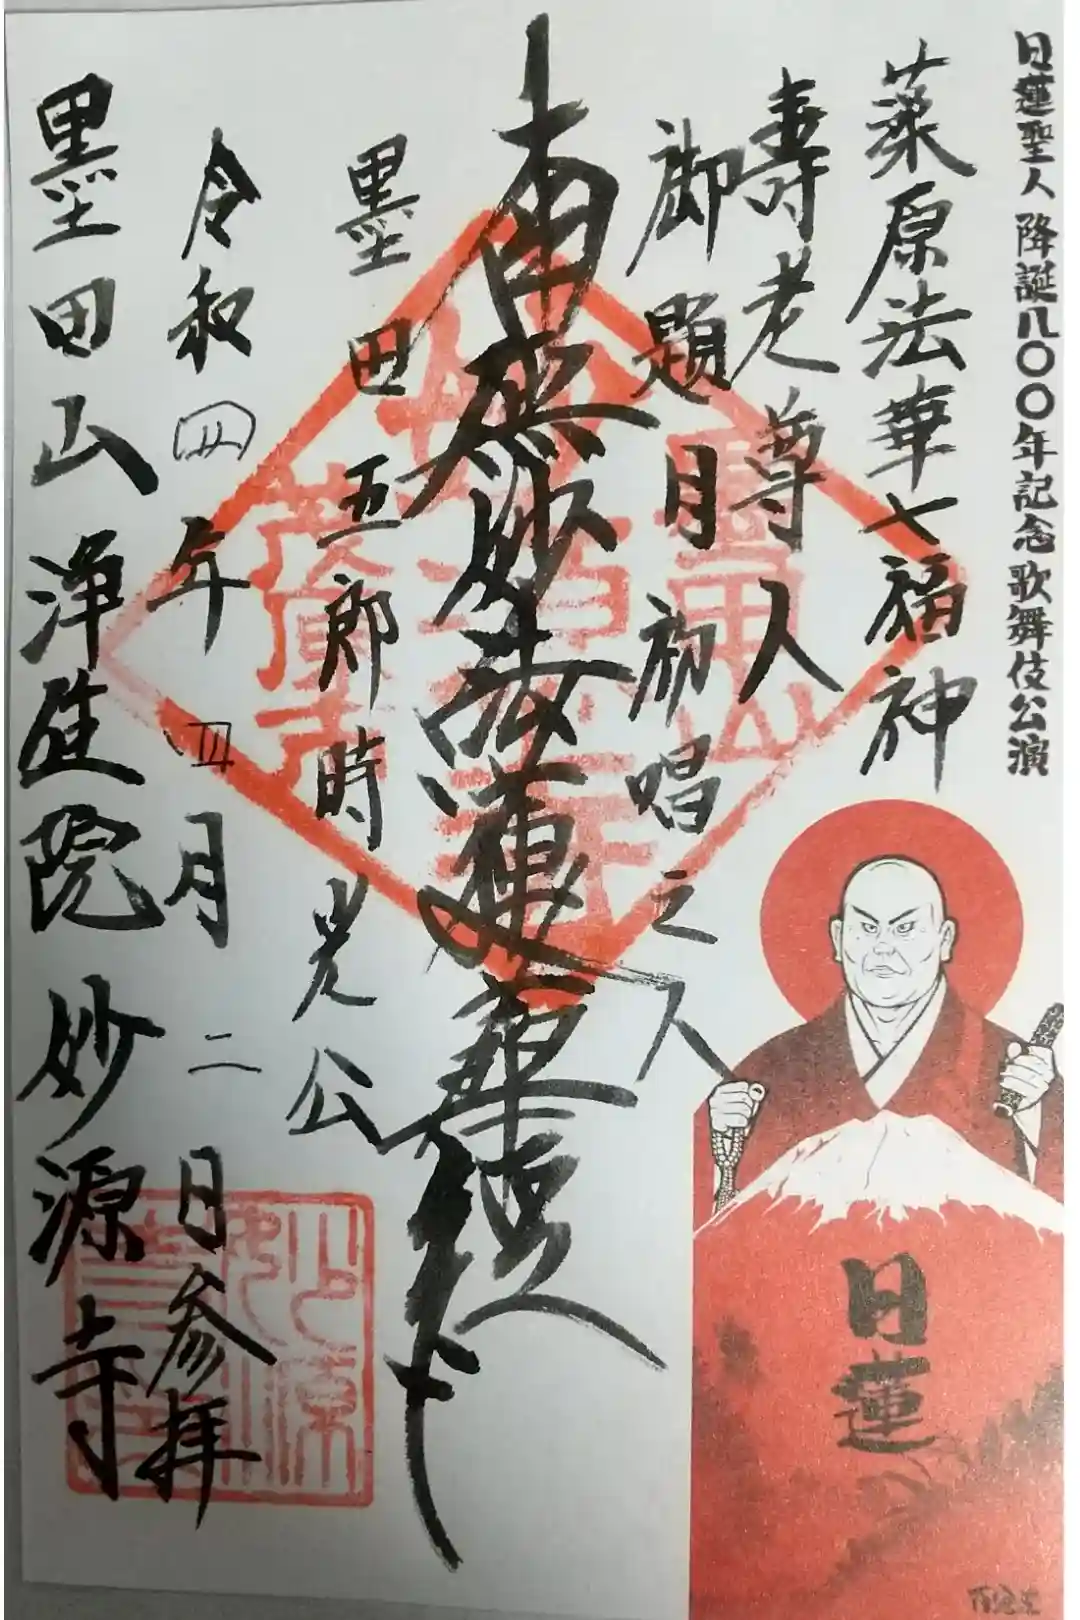 日蓮聖人降誕八〇〇年記念歌舞伎公演
藻原法華七福神
寿老尊人
御題目初唱之人
南無妙法蓮華経
墨田五郎時光公
令和四年四月二日参拝
墨田山浄延院妙源寺
日蓮